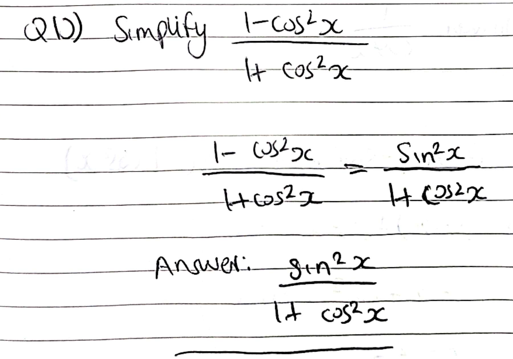 Q1b) Simplify (1-cos²x)/(1+cos²x)
(1-cos²x)/(1+cos²x) = (Sin²x)/(1+cos²x)
Answer: (sin²x)/(1+cos²x)